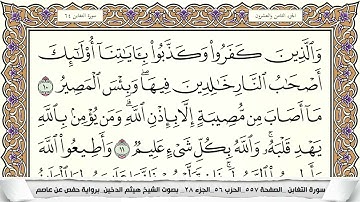 الجزء الثامن والعشرون
سورة التغابن ٦٤
وَالَّذِينَ كَفَرُوا وَكَذَّبُوا بِآيَاتِنَا أُولَٰئِكَ
أَصْحَابُ النَّارِ خَالِدِينَ فِيهَا ۖ وَبِئْسَ الْمَصِيرُ ١٠
مَا أَصَابَ مِن مُّصِيبَةٍ إِلَّا بِإِذْنِ اللَّهِ ۗ وَمَن يُؤْمِن بِاللَّهِ
يَهْدِ قَلْبَهُ ۚ وَاللَّهُ بِكُلِّ شَيْءٍ عَلِيمٌ ١١ وَأَطِيعُوا اللَّهَ
سورة التغابن _ الصفحة ٥٥٧_ الحزب ٥٦_ الجزء ٢٨_ بصوت الشيخ هيثم الدخين_ برواية حفص عن عاصم